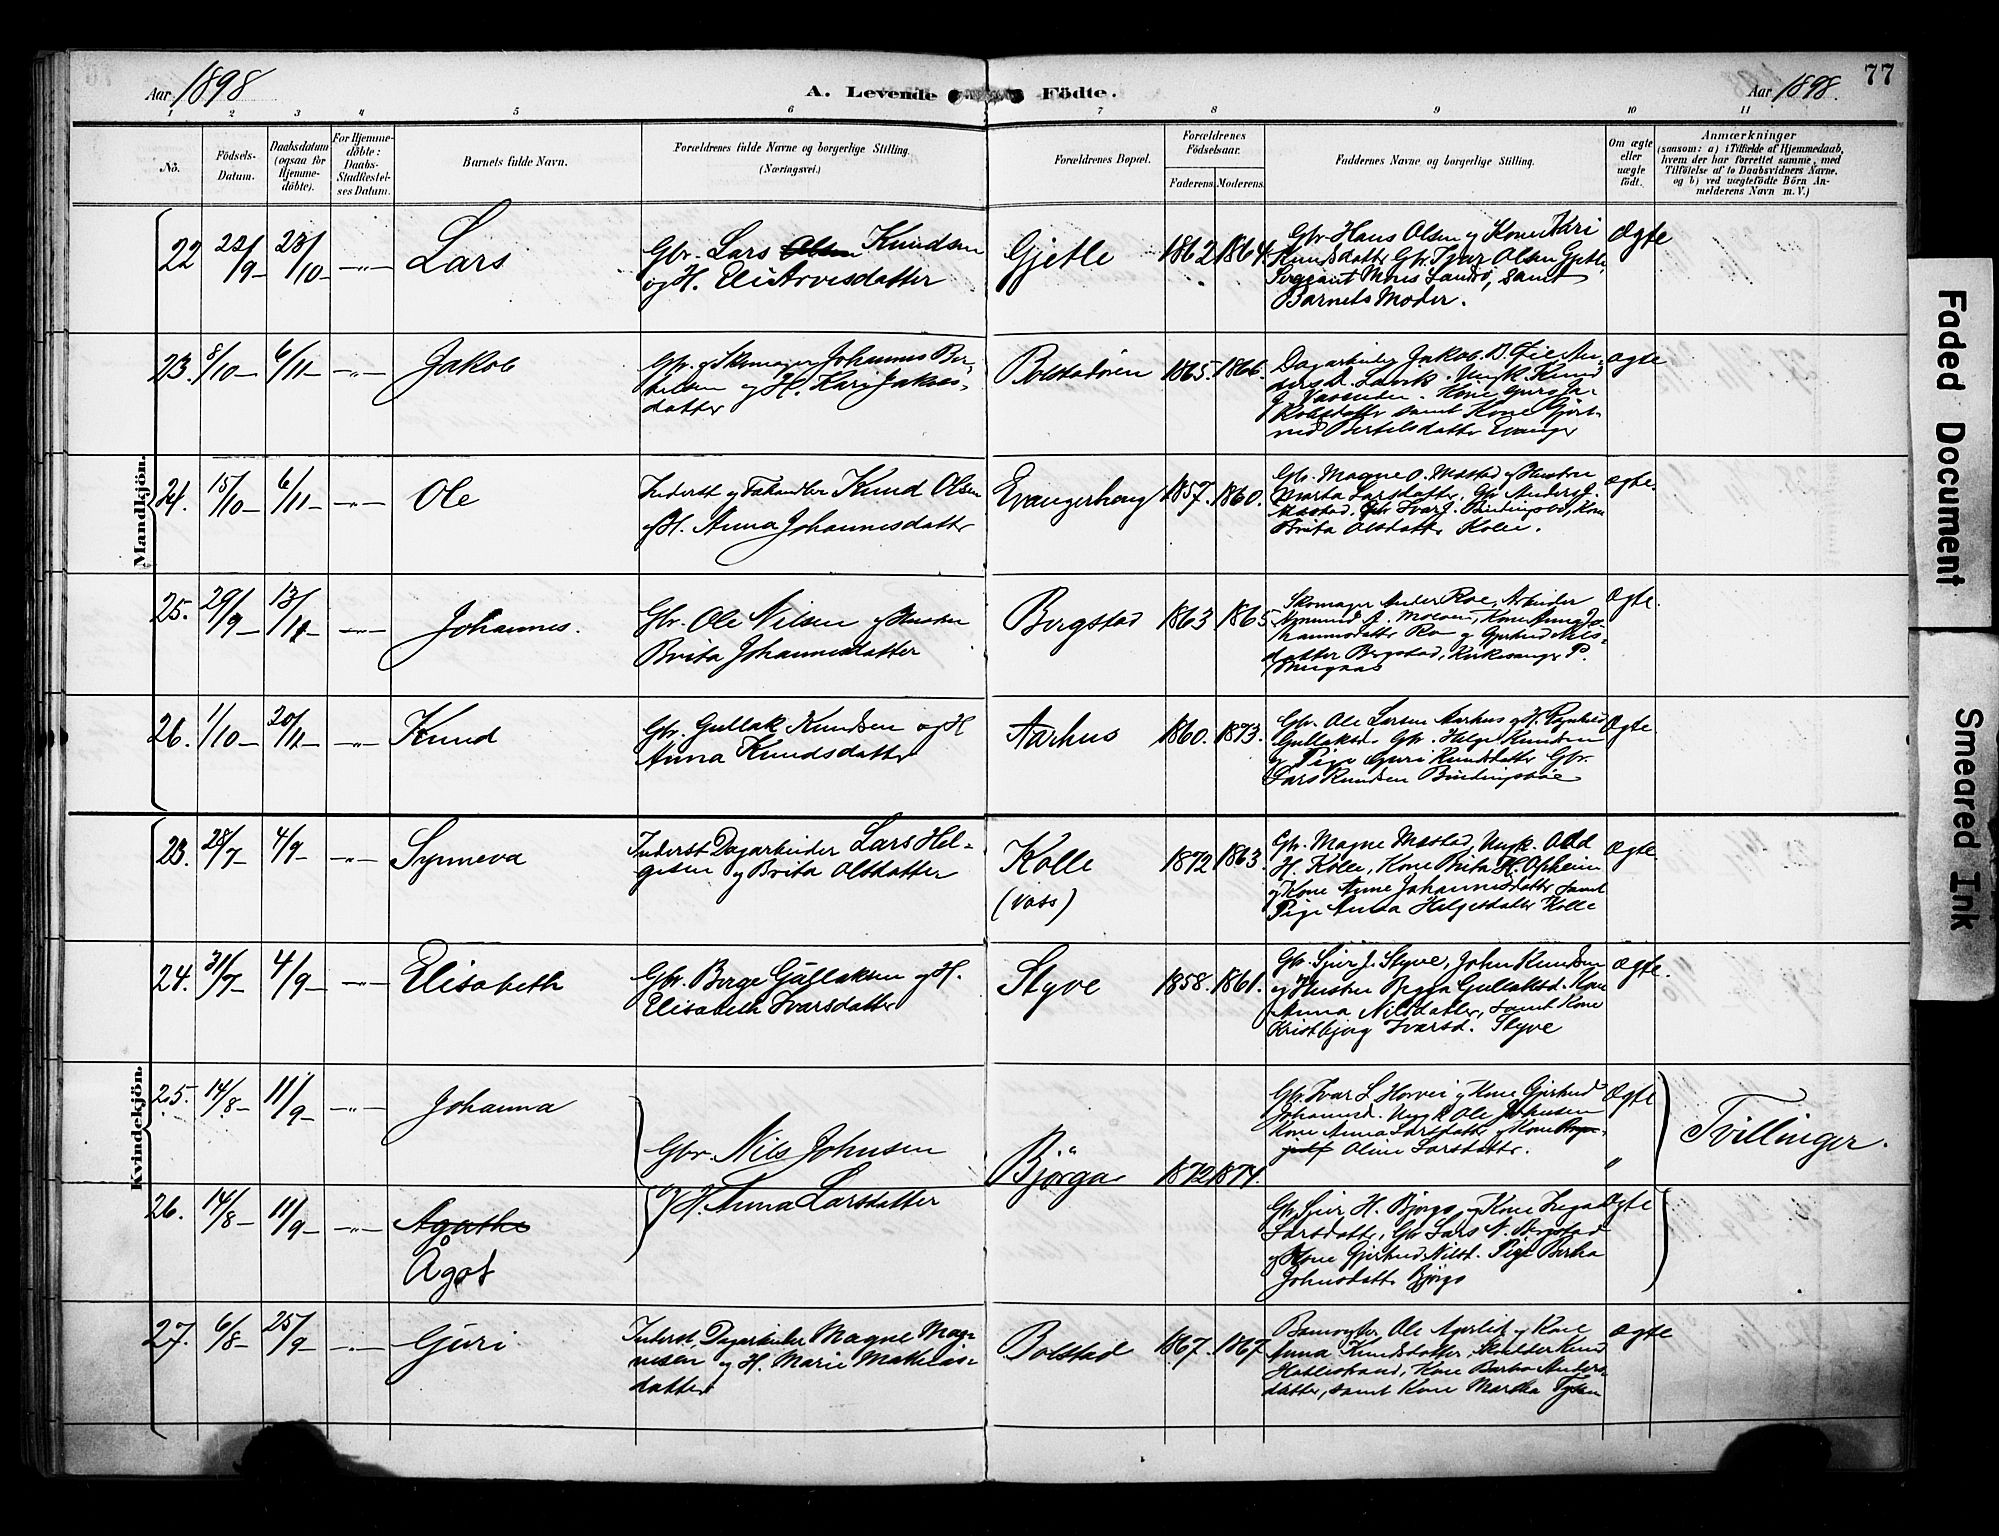 Aar 1898
A. Levende Födte.
Aar 1898.
77
1 2 3 4 5 6 7 8 9 10 11
No.
Födsels-Datum.
Daabsdatum (ogsaa for Hjemme-döbte).
For Hjemme-döbte: Daabs-Stadfæstel-ses Datum.
Barnets fulde Navn.
Forældrenes fulde Navne og borgerlige Stilling.
(Næringsvei.)
Forældrenes Bopæl.
Forældrenes Födselsaar.
Faderens. Moderens.
Faddernes Navne og borgerlige Stilling.
Om ægte eller uægte födt.
Anmærkninger
(saasom: a) i Tilfælde af Hjemmedaab, hvem der har forrettet samme, med Tilföielse af to Daabsvidners Navne, og b) ved uægtefödte Börn An-melderens Navn m. V.)
Mandkjön.
22 22/9 23/10 Lars
Gbr. Lars Olsen Knudsen
og H. Eli Arvesdatter
Gjetle 1862 1864.
Gbr. Hans Olsen og Kone Kari
Knudsdatter Gbr. Ivar Olsen Gjetle,
Sergeant Mons Landrö, samt
Barnets Moder.
Ægte
23. 8/10 6/11 Jakob
Gbr. og Skomager Johannes Ber-
telsen og H. Kari Jakobs-
datter
Bolstadören 1865. 1866.
Dagarbeider Jakob B. Öie An-
ders
Kobsdatter samt Kone Gjert-
rud Bertelsdatter Evanger
ægte
24. 15/10 6/11 Ole
Inderst og Fæhandler Knud Olsen
og H. Anna Johannesdatter
Evangerhoug 1857. 1860.
Gbr. Magne O. Mæstad og Hustru
Marta Larsdatter, Gbr Anders J.
Mæstad, Gbr Ivar J. Bindingsbö, Kone
Brita Olsdatter Kolle.
ægte.
25. 29/9 13/11 Johannes.
Gbr. Ole Nilsen og Hustru
Brita Johannesdatter
Bergstad 1863 1865
Skomager Anders Roe, Arbeider
Amund A. Moeen, Kone Anna Jo-
hannesdatter Ro og Gjertrud Nils-
datter Bergstad, Kirkesanger P.
ægte.
26. 1/10 20/11 Knud
Gbr. Gullak Knudsen og H
Anna Knudsdatter
Aarhus 1860. 1873.
Gbr. Ole Larsen Aarhus og H. Ragnhild
Gullaksd. Gbr. Helge Knudsen
og Pige Guri Knudsdatter Gbr.
Lars Knudsen Bindingsböe
Ægte.
Kvindekjön.
23. 28/7 4/9 Synneva
Inderst Dagarbeider Lars Hel-
gesen og Brita Olsdatter
Kolle 1872 1863.
(Voss)
Gbr. Magne Mæstad, Ungk. Odd
H. Kolle, Kone Brita H. Opheim
og Kone Anna Johannesdatter samt
Pige Anna Helgesdatter Kolle
Ægte.
24. 31/7 4/9 Elisabeth
Gbr. Börge Gullaksen og H.
Elisabeth Ivarsdatter
Styve 1858. 1861.
Gbr. Sjur J. Styve, John Knudsen
og Hustru Brytta Gullaksd. Kone
Anna Nilsdatter, samt Kone
Kristbjörg Ivarsd. Styve
Ægte.
25. 14/8 11/9 Johanna
Gbr. Nils Johnsen
og H. Anna Larsdatter
Björga 1872 1874.
Gbr. Ivar L Horvei og Kone Gjertrud
Johannesd. Ungk Ole Johnsen
Kone Anna Larsdatter og Kone
Oline Larsdatter.
Ægte
Tvillinger.
26. 14/8 11/9 Agathe
Ågot
Gbr Sjur H. Björgo og Kone Inga
Larsdatter, Gbr Lars N. Bergstad
og Kone Gjertrud Nilsd. Pige Bertha
Johnsdatter Björgo
Ægte
27. 6/8 25/9 Guri
Inderst, Dagarbeider Magne Mag-
nesen og H. Marie Mathias-
datter
Bolstad 1867. 1867
Banevogter Ole Aperlid og Kone
Anna Knudsdatter, Knud
Hatlestrand, Kone Barbra Anders-
datter, samt Kone Martha
Ægte
Faded Document
Smeared Ink